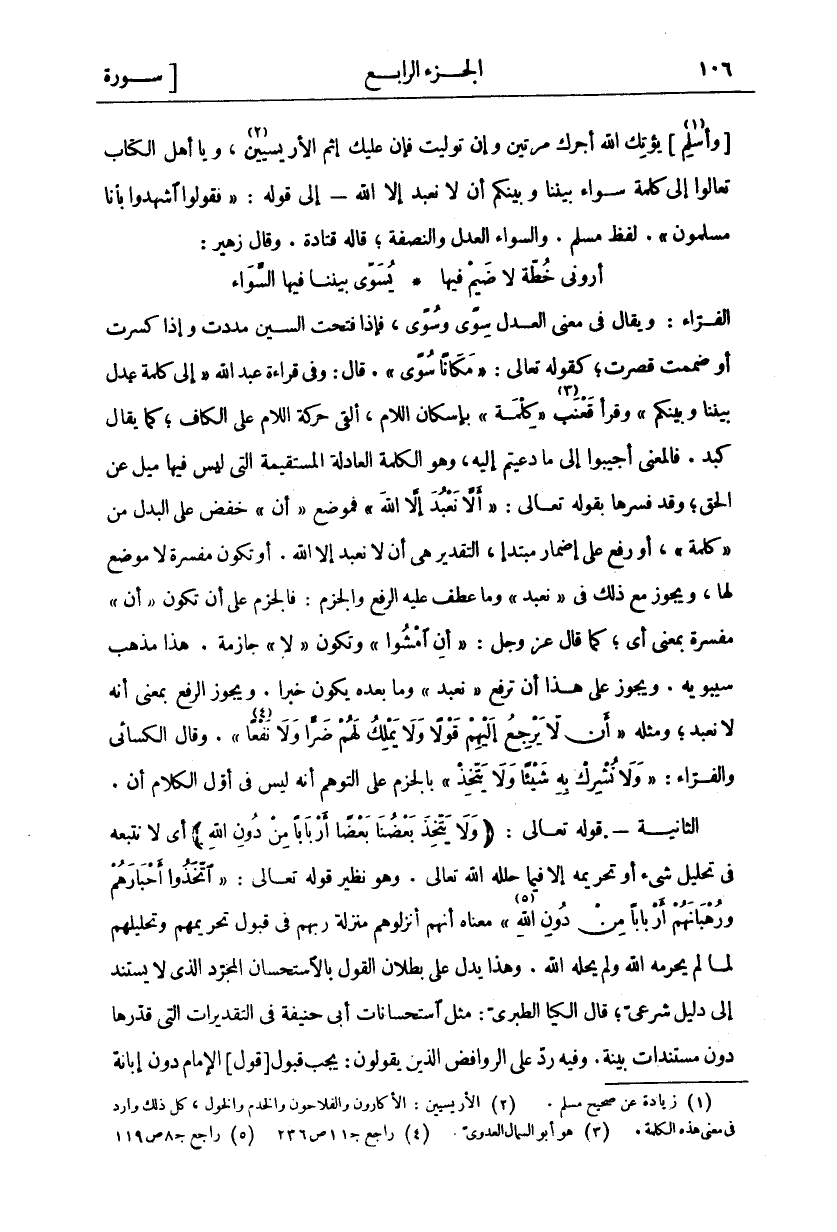 ١٠٦ الجزء الرابع [ سورة
[وأسلم]<sup>(١)</sup> يؤتك الله أجرك مرتين وإن توليت فإن عليك إثم الأريسيين<sup>(٢)</sup> ، ويا أهل الكتاب
تعالوا إلى كلمة سواء بيننا وبينكم أن لا نعبد إلا الله — إلى قوله : « فقولوا آشهدوا بأنا
مسلمون » . لفظ مسلم . والسواء العدل والنصفة ؛ قاله قتادة . وقال زهير :
أرونى خُطّة لا ضَيْمَ فيها * يُسَوّى بيننا فيها السَّوَاء
الفرّاء : ويقال فى معنى العدل سِوًى وسُوًى ، فإذا فتحت السين مددت وإذا كسرت
أو ضممت قصرت ؛ كقوله تعالى : « مَكَانًا سُوًى » . قال : وفى قراءة عبد الله « إلى كلمة عدل
بيننا وبينكم » وقرأ قَعْنَب<sup>(٣)</sup> « كِلْمَة » بإسكان اللام ، ألقى حركة اللام على الكاف ؛ كما يقال
كبد . فالمعنى أجيبوا إلى ما دعيتم إليه ، وهو الكلمة العادلة المستقيمة التى ليس فيها ميل عن
الحق ؛ وقد فسرها بقوله تعالى : « أَلَّا نَعْبُدَ إِلَّا اللهَ » فموضع « أن » خفض على البدل من
« كلمة » ، أو رفع على إضمار مبتدإ ، التقدير هى أن لا نعبد إلا الله . أو تكون مفسرة لا موضع
لها ، ويجوز مع ذلك فى « نعبد » وما عطف عليه الرفع والجزم : فالجزم على أن تكون « أن »
مفسرة بمعنى أى ؛ كما قال عز وجل : « أَنِ آمْشُوا » وتكون « لا » جازمة . هذا مذهب
سيبويه . ويجوز على هذا أن ترفع « نعبد » وما بعده يكون خبرا . ويجوز الرفع بمعنى أنه
لا نعبد ؛ ومثله « أَن لَا يَرْجِعُ إِلَيْهِمْ قَوْلًا وَلَا يَمْلِكُ لَهُمْ ضَرًّا وَلَا نَفْعًا<sup>(٤)</sup> » . وقال الكسائى
والفرّاء : « وَلَا نُشْرِكْ بِهِ شَيْئًا وَلَا يَتَّخِذْ » بالجزم على التوهم أنه ليس فى أوّل الكلام أن .
الثانية — قوله تعالى : ﴿ وَلَا يَتَّخِذَ بَعْضُنَا بَعْضًا أَرْبَابًا مِنْ دُونِ اللهِ ﴾ أى لا نتبعه
فى تحليل شىء أو تحريمه إلا فيما حلله الله تعالى . وهو نظير قوله تعالى : « آتَّخَذُوا أَحْبَارَهُمْ
ورُهْبَانَهُمْ أَرْبَابًا مِنْ دُونِ اللهِ<sup>(٥)</sup> » معناه أنهم أنزلوهم منزلة ربهم فى قبول تحريمهم وتحليلهم
لما لم يحرمه الله ولم يحله الله . وهذا يدل على بطلان القول بالآستحسان المجرّد الذى لا يستند
إلى دليل شرعىّ ؛ قال الكيا الطبرىّ : مثل آستحسانات أبى حنيفة فى التقديرات التى قدّرها
دون مستندات بينة . وفيه ردّ على الروافض الذين يقولون : يجب قبول [قول] الإمام دون إبانة
(١) زيادة عن صحيح مسلم . (٢) الأريسيين : الأكارون والفلاحون والخدم والخول ، كل ذلك وارد
فى معنى هذه الكلمة . (٣) هو أبو السمال العدوىّ . (٤) راجع جـ ١١ ص ٢٣٦ (٥) راجع جـ ٨ ص ١١٩